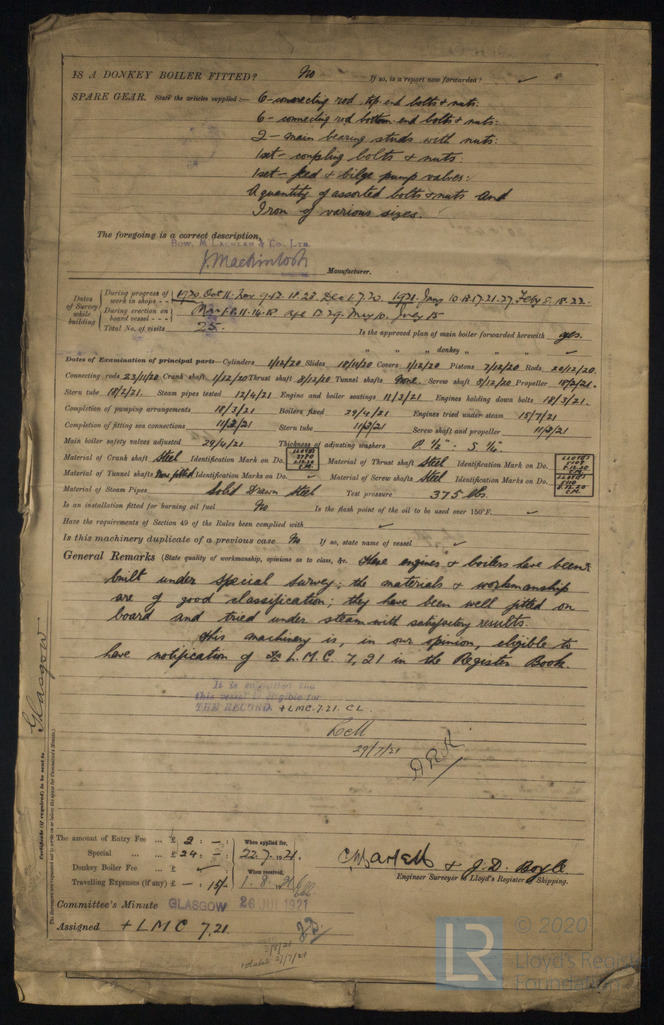 IS A DONKEY BOILER FITTED? No If so, is a report now forwarded? ✓
SPARE GEAR. State the articles supplied:— 6 - connecting rod top end bolts & nuts:
6 - connecting rod bottom end bolts & nuts:
2 - main bearing studs with nuts:
1 set - coupling bolts & nuts:
1 set - feed & bilge pump valves:
A quantity of assorted bolts & nuts and
Iron of various sizes.
The foregoing is a correct description,
BOW, McLACHLAN & CO., LTD.
J. Mackintosh
Manufacturer.
Dates of Survey while building
During progress of work in shops - - 1920. Oct 11. Nov 9.17.18.23. Dec 1.7.20. 1921. Jany 10.18.17.21.27. Feby 5.18.22.
During erection on board vessel - - - Mar 1.8.11.16.18 Apl 12.29. May 10. July 15
Total No. of visits 25. Is the approved plan of main boiler forwarded herewith yes.
" " " donkey " " ✓
Dates of Examination of principal parts—Cylinders 1/12/20 Slides 18/11/20 Covers 1/12/20 Pistons 7/12/20 Rods 20/12/20.
Connecting rods 23/11/20 Crank shaft 1/12/20 Thrust shaft 8/12/20 Tunnel shafts None. Screw shaft 8/12/20 Propeller 18/2/21.
Stern tube 18/2/21. Steam pipes tested 12/4/21 Engine and boiler seatings 11/3/21 Engines holding down bolts 18/3/21.
Completion of pumping arrangements 18/3/21 Boilers fixed 29/4/21 Engines tried under steam 15/7/21
Completion of fitting sea connections 11/3/21 Stern tube 11/3/21 Screw shaft and propeller 11/3/21
Main boiler safety valves adjusted 29/4/21 Thickness of adjusting washers
Material of Crank shaft Steel Identification Mark on Do. Material of Thrust shaft Steel Identification Mark on Do.
Material of Tunnel shafts None fitted Identification Marks on Do. ✓ Material of Screw shaft Steel Identification Marks on Do.
Material of Steam Pipes Solid Drawn Steel Test pressure 375 lbs.
Is an installation fitted for burning oil fuel No Is the flash point of the oil to be used over 150°F. ✓
Have the requirements of Section 49 of the Rules been complied with ✓
Is this machinery duplicate of a previous case No If so, state name of vessel ✓
General Remarks (State quality of workmanship, opinions as to class, &c. These engines & boilers have been
built under special survey; the materials & workmanship
are of good classification; they have been well fitted on
board and tried under steam with satisfactory results.
This machinery is, in our opinion, eligible to
have notification of + L.M.C. 7,21 in the Register Book
It is submitted that
this vessel is eligible for
THE RECORD. + LMC. 7.21. CL.
29/7/21
A.R.R.
Glasgow
Certificate (if required) to be sent to
The amount of Entry Fee ... £ 2 : - :
Special ... £ 24 : - :
Donkey Boiler Fee ... £ ✓
Travelling Expenses (if any) £ - : 15/- :
When applied for,
22.7.1921.
When received,
1.8.21
& J. D. Boyle
Engineer Surveyor to Lloyd's Register of Shipping.
Committee's Minute GLASGOW 26 JUL 1921
Assigned + L M C 7,21.
J.D.
© 2020
LR Lloyd's Register
Foundation